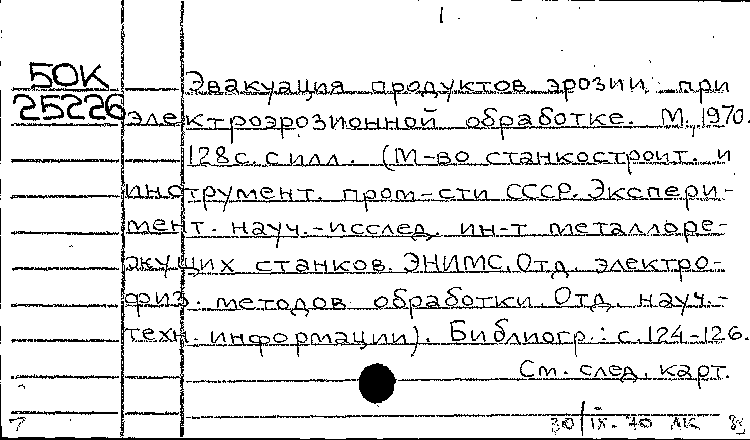 БОК
25226
Эвакуация продуктов эрозии при
электроэрозионной обработке. М., 1970.
128 с. с илл. (М-во станкостроит. и
инструмент. пром-сти СССР. Экспери-
мент. науч.-исслед. ин-т металлоре-
жущих станков. ЭНИМС. Отд. электро-
физ. методов обработки. Отд. науч.-
техн. информации). Библиогр.: с. 124-126.
См. след. карт.
30/IX-70 ЛК